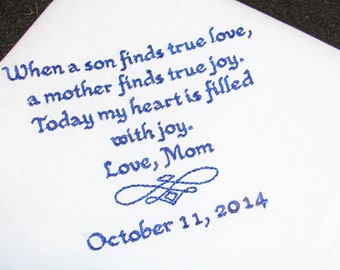 When a son finds true love,
a mother finds true joy.
Today my heart is filled
with joy.
Love, Mom
October 11, 2014